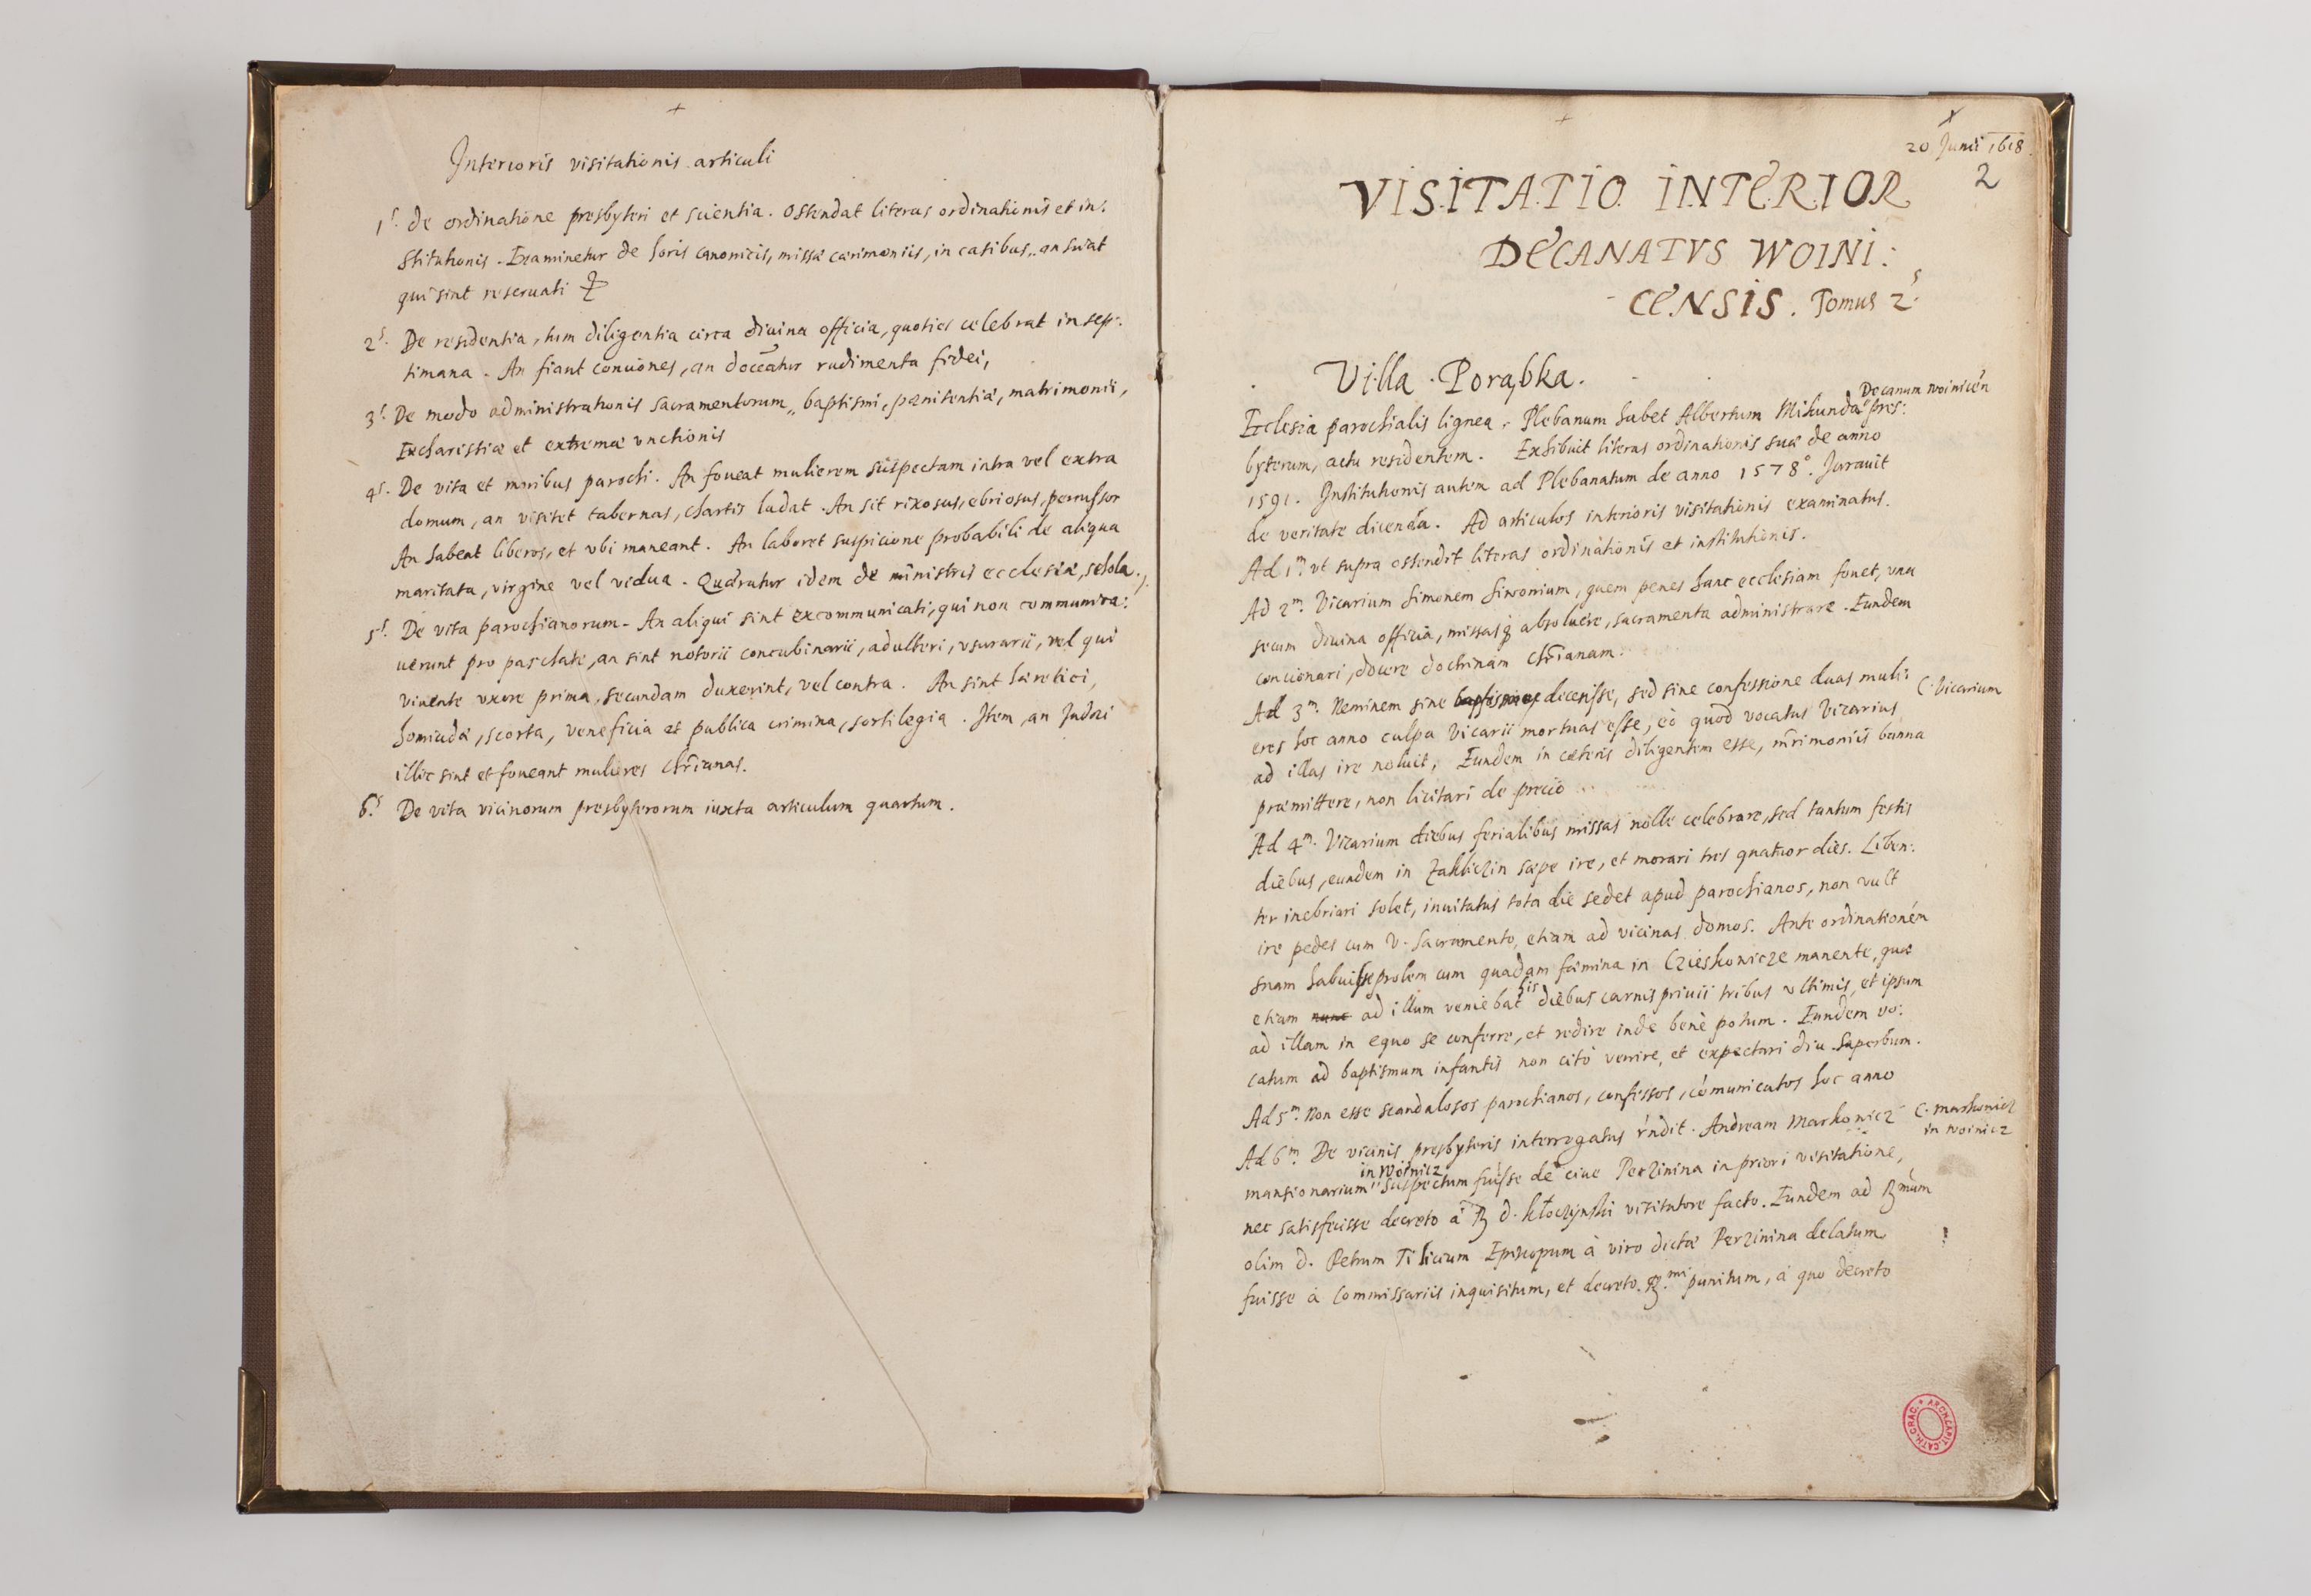 Interioris visitationis articuli
1s. De ordinatione presbyteri et scientia. Ostendat literas ordinationis et in:
stitutionis. Examinetur de horis canonicis, missæ cærimoniis, in casibus, an sciat
qui sint reseruati
2s. De residentia, tum diligentia circa diuina officia, quoties celebrat in sep:
timana. An fiant conciones, an doceatur rudimenta fidei,
3s. De modo administrationis sacramentorum, baptismi, pænitentiæ, matrimonii,
Eucharistiæ et extremæ vnctionis
4s. De vita et moribus parochi. An foueat mulierem suspectam intra vel extra
domum, an visitet tabernas, chartis ludat. An sit rixosus, ebriosus, percussor
An habeat liberos, et vbi maneant. An laboret suspicione probabili de aliqua
maritata, virgine vel vidua. Quæratur idem de ministris ecclesiæ, schola.
5s. De vita parochianorum. An aliqui sint excommunicati, qui non communica:
uerunt pro paschate, an sint notorii concubinarii, adulteri, vsurarii, vel qui
viuente vxore prima, secundam duxerint, vel contra. An sint hæretici,
homicidæ, scorta, veneficia et publica crimina, sortilegia. Item, an Judæi
illic sint et foueant mulieres Chrianas.
6s. De vita vicinorum presbyterorum iuxta articulum quartum.
20 Junii 1618.
2
VISITATIO INTERIOR
DECANATVS WOINI:
CENSIS. Tomus 2s.
Villa Porąbka.
Decanum woinicen
Ecclesia parochialis lignea. Plebanum habet Albertum Mikunda pres:
byterum, actu residentem. Exhibuit literas ordinationis suæ de anno
1591. Institutionis autem ad Plebanatum de anno 1578o. Jurauit
de veritate dicenda. Ad articulos interioris visitationis examinatus.
Ad 1m. vt supra ostendit literas ordinationis et institutionis.
Ad 2m. Vicarium Simonem Sixonium, quem penes hanc ecclesiam fouet, vna
secum diuina officia, missasq absoluere, sacramenta administrare. Eundem
concionari, docere doctrinam Chrianam.
Ad 3m. Neminem sine baptismo decessisse, sed sine confessione duas muli:
C. Vicarium
eres hoc anno culpa Vicarii mortuas esse, eò quod vocatus Vicarius
ad illas ire noluit, Eundem in cæteris diligentem esse, mrimoniis banna
præmittere, non licitari de precio
Ad 4m. Vicarium diebus ferialibus missas nolle celebrare, sed tantum festis
diebus, eundem in Zakliczin sæpe ire, et morari tres quatuor dies. Liben:
ter inebriari solet, inuitatus tota die sedet apud parochianos, non vult
ire pedes cum V. Sacramento, etiam ad vicinas domos. Ante ordinationem
suam habuisse prolem cum quadam fœmina in Czieskowicze manente, quæ
etiam nunc ad illum veniebat his diebus carnis priuii tribus vltimis, et ipsum
ad illam in equo se conferre, et redire inde benè potum. Eundem vo:
catum ad baptismum infantis non citò venire, et expectari diu. Superbum.
Ad 5m. Non esse scandalosos parochianos, confessos, comunicatos hoc anno
Ad 6m. De vicinis presbyteris interrogatus rndit. Andream Markowicz
C. Markowicz
in woinicz
in Woinicz
mansionarium suspectum fuisse de ciue Perzinina in priori visitatione,
nec satisfecisse decreto à R d. Kłoczynski visitatore facto. Eundem ad Rmum
olim d. Petrum Tilicium Episcopum à viro dictæ Perzinina delatum
fuisse à Commissariis inquisitum, et decreto Rmi punitum, à quo decreto
ARCH. CAPIT. CATH. CRAC.